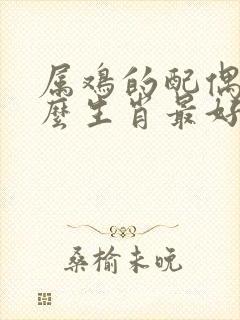 属鸡的配偶
麽生肖最好
桑榆未晚